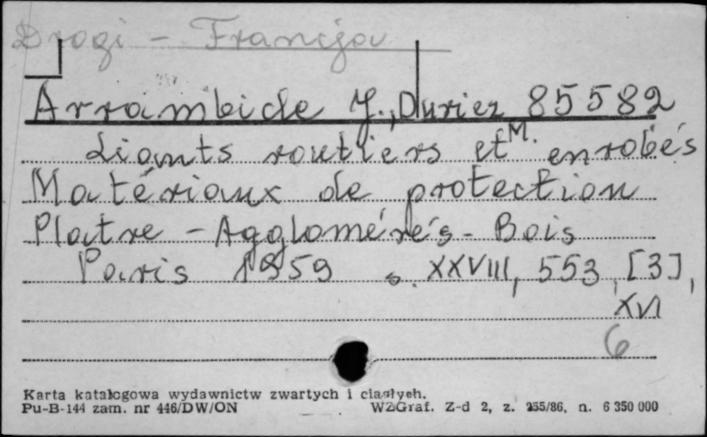 Drogi - Francja
Arrambide J., Duriez 85582
Liants routiers et enrobés M.
Matériaux de protection
Platre - Agglomérés - Bois
Paris 1959 s. XXVIII, 553, [3],
XVI
6
Karta katalogowa wydawnictw zwartych i ciągłych.
Pu-B-144 zam. nr 446/DW/ON WZGraf. Z-d 2, z. 255/86, n. 6 350 000